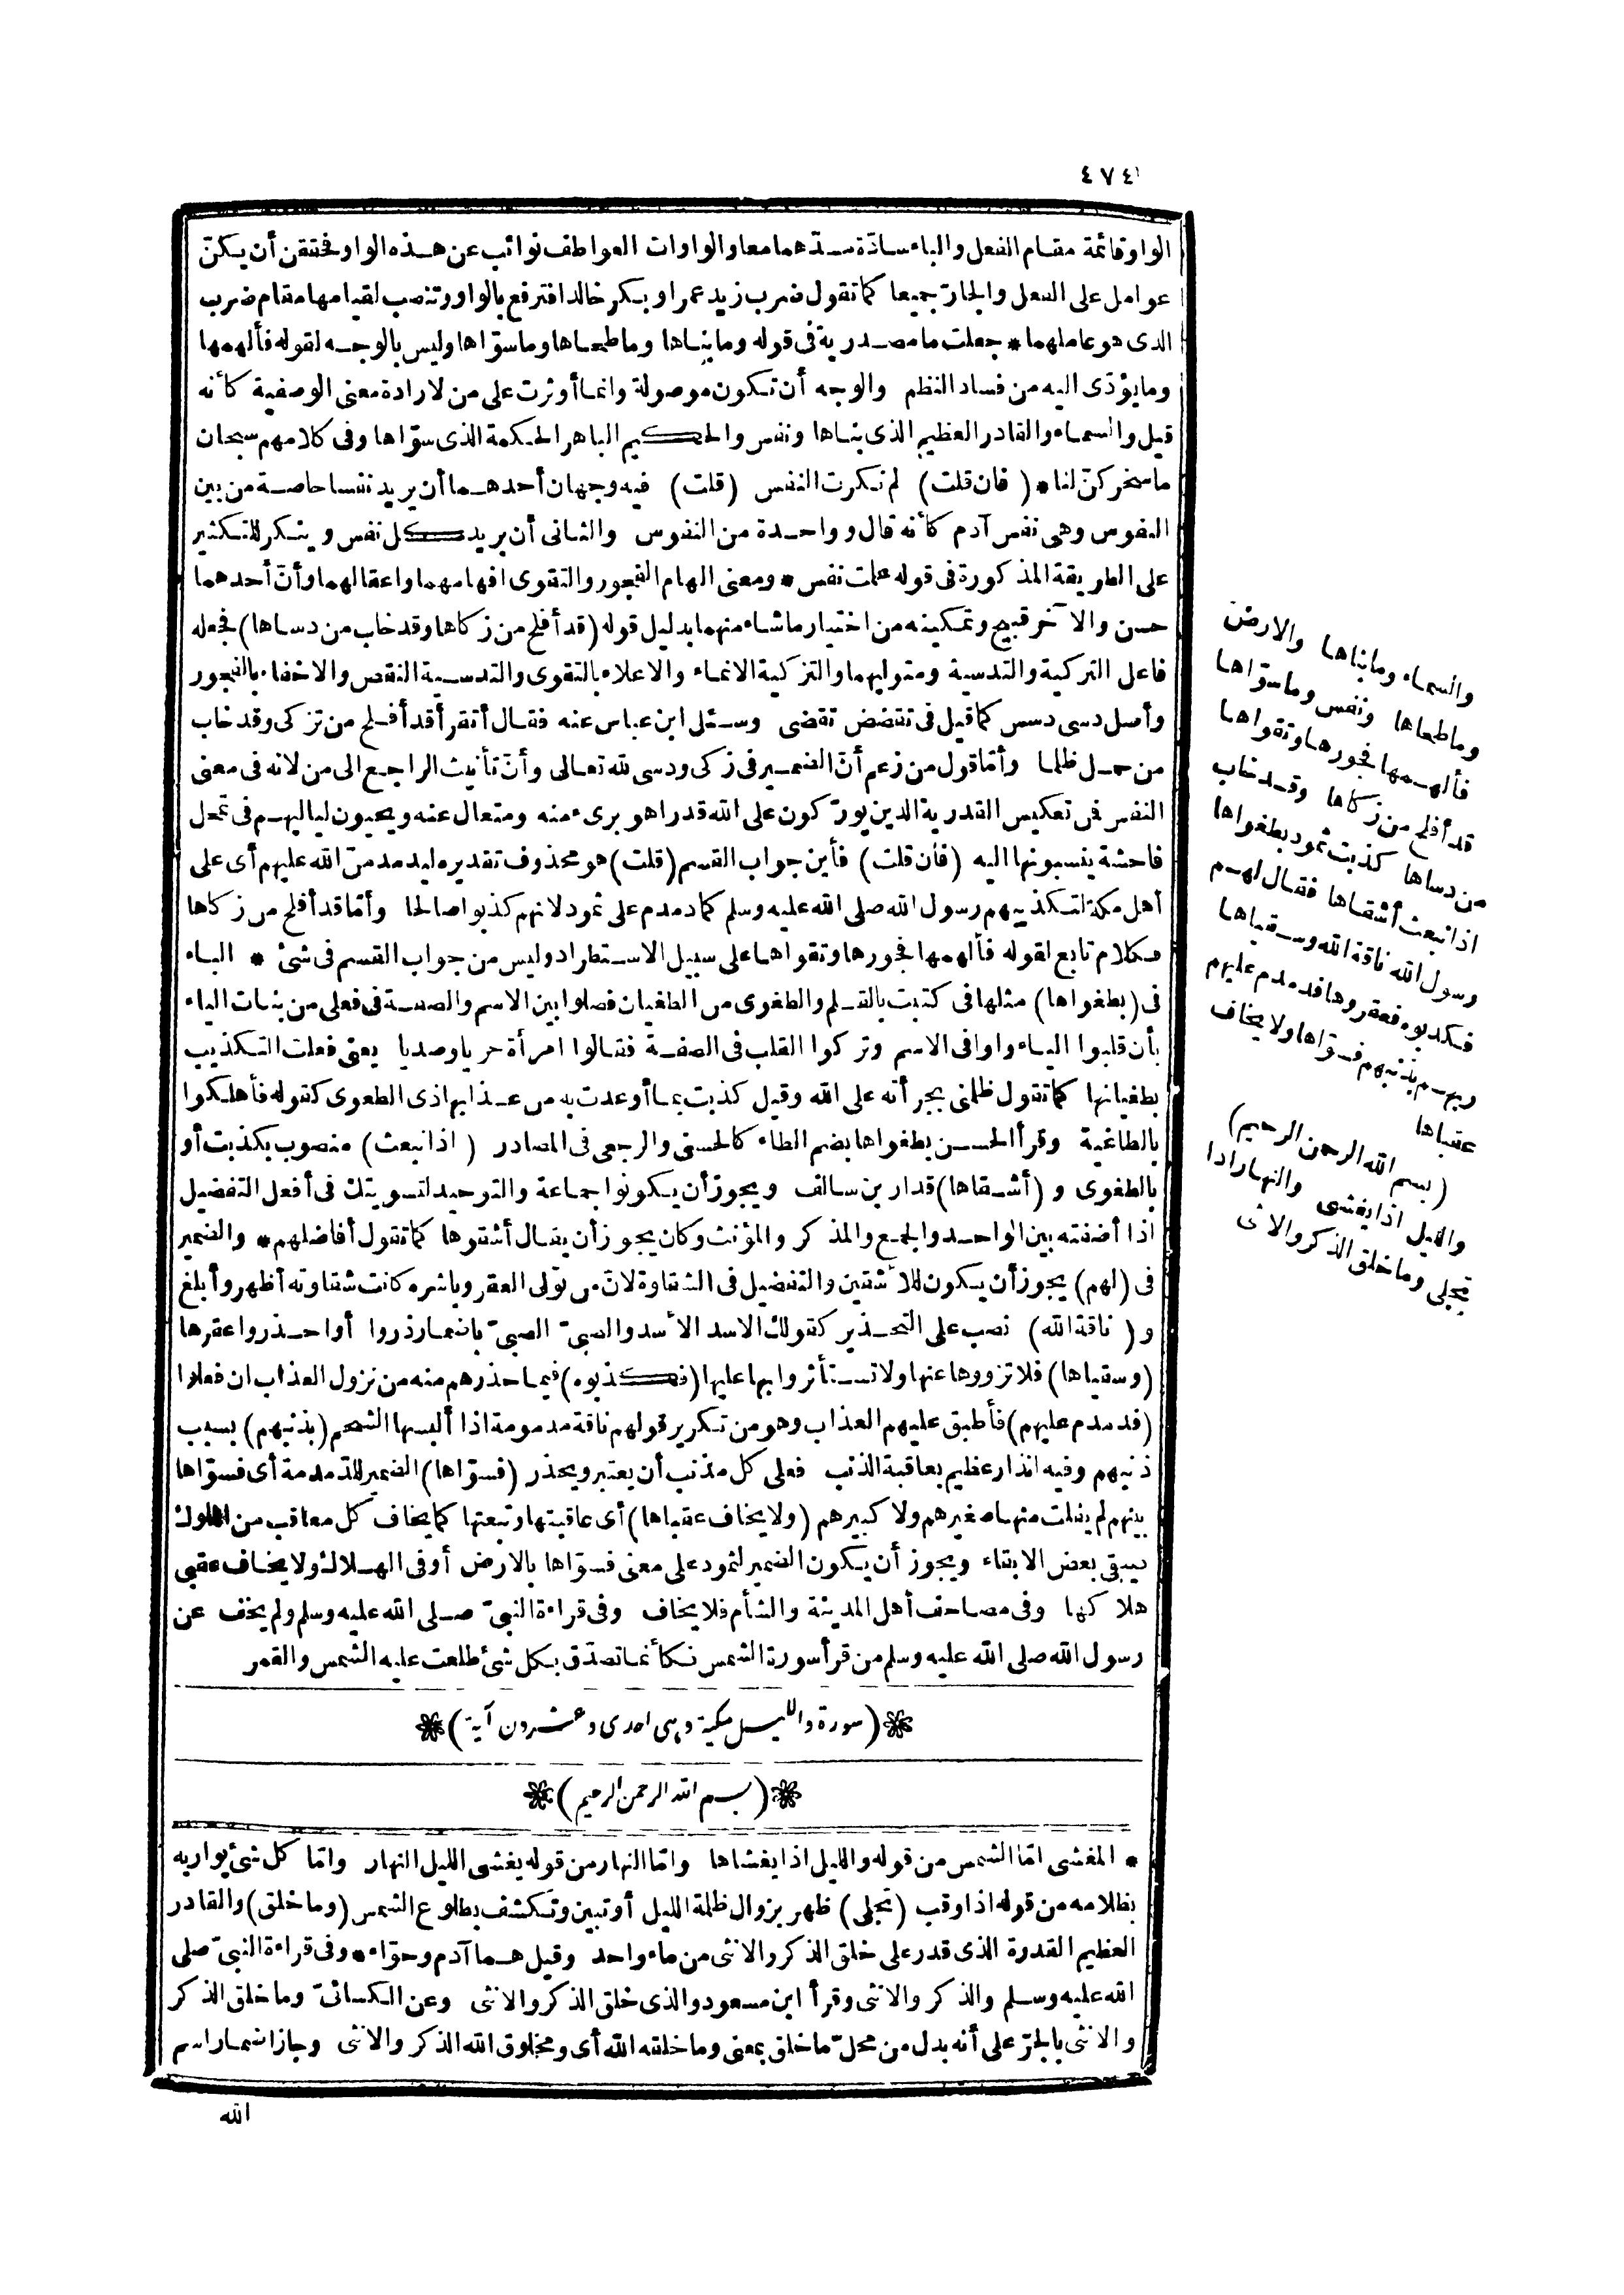 ٤٧٤
الواو قائمة مقام الفعل والباء سادّة مسدّهما معا والواوات العواطف نوائب عن هذه الواو فحققن أن يكنّ
عوامل على الفعل والجارّ جميعا كما تقول ضرب زيد عمرا وبكر خالدا فترفع بالواو وتنصب لقيامها مقام ضرب
الذى هو عاملهما * جعلت ما مصدرية فى قوله وما بناها وما طحاها وما سوّاها وليس بالوجه لقوله فألهمها
وما يؤدّى اليه من فساد النظم والوجه أن تكون موصولة وانما أوثرت على من لارادة معنى الوصفية كأنه
قيل والسماء والقادر العظيم الذى بناها ونفس والحكيم الباهر الحكمة الذى سوّاها وفى كلامهم سبحان
ما سخركنّ لنا * (فان قلت) لم نكرت النفس (قلت) فيه وجهان أحدهما أن يريد نفسا خاصة من بين
النفوس وهى نفس آدم كأنه قال وواحدة من النفوس والثانى أن يريد كل نفس وينكر للتكثير
على الطريقة المذكورة فى قوله علمت نفس * ومعنى الهام الفجور والتقوى افهامهما واعقالهما وأنّ أحدهما
حسن والآخر قبيح وتمكينه من اختيار ما شاء منهما بدليل قوله (قد أفلح من زكاها وقد خاب من دساها) فجعله
فاعل التزكية والتدسية ومتوليهما والتزكية الانماء والاعلاء بالتقوى والتدسية النقص والاخفاء بالفجور
وأصل دسى دسس كما قيل فى تقضض تقضى وسئل ابن عباس عنه فقال أتقرأ قد أفلح من تزكى وقد خاب
من حمل ظلما وأمّا قول من زعم أنّ الضمير فى زكى ودسى لله تعالى وأنّ تأنيث الراجع الى من لانه فى معنى
النفس فمن تعكيس القدرية الذين يورّكون على الله قدرا هو برىء منه ومتعال عنه ويحيون لياليهم فى تمحل
فاحشة ينسبونها اليه (فان قلت) فأين جواب القسم (قلت) هو محذوف تقديره ليدمدمنّ الله عليهم أى على
أهل مكة لتكذيبهم رسول الله صلى الله عليه وسلم كما دمدم على ثمود لانهم كذبوا صالحا وأمّا قد أفلح من زكاها
فكلام تابع لقوله فألهمها فجورها وتقواها على سبيل الاستطراد وليس من جواب القسم فى شئ * الباء
فى (بطغواها) مثلها فى كتبت بالقلم والطغوى من الطغيان فصلوا بين الاسم والصفة فى فعلى من بنات الياء
بأن قلبوا الياء واوا فى الاسم وتركوا القلب فى الصفة فقالوا امرأة خزيا وصديا يعنى فعلت التكذيب
بطغيانها كما تقول ظلمنى بجرأته على الله وقيل كذبت بما أوعدت به من عذابها ذى الطغوى كقوله فأهلكوا
بالطاغية وقرأ الحسن بطغواها بضم الطاء كالحسنى والرجعى فى المصادر (اذ انبعث) منصوب بكذبت أو
بالطغوى و (أشقاها) قدار بن سالف ويجوز أن يكونوا جماعة والتوحيد لتسويتك فى أفعل التفضيل
اذا أضفته بين الواحد والجمع والمذكر والمؤنث وكان يجوز أن يقال أشقوها كما تقول أفاضلهم * والضمير
فى (لهم) يجوز أن يكون للأشقين والتفضيل فى الشقاوة لانّ من تولى العقر وباشره كانت شقاوته أظهر وأبلغ
و (ناقة الله) نصب على التحذير كقولك الاسد الأسد والصبىّ الصبىّ باضمار ذروا أو احذروا عقرها
(وسقياها) فلا تزووها عنها ولا تستأثروا بها عليها (فكذبوه) فيما حذرهم منه من نزول العذاب ان فعلوا
(فدمدم عليهم) فأطبق عليهم العذاب وهو من تكرير قولهم ناقة مدمومة اذا ألبسها الشحم (بذنبهم) بسبب
ذنبهم وفيه انذار عظيم بعاقبة الذنب فعلى كل مذنب أن يعتبر ويحذر (فسوّاها) الضمير للدمدمة أى فسوّاها
بينهم لم يفلت منها صغيرهم ولا كبيرهم (ولا يخاف عقباها) أى عاقبتها وتبعتها كما يخاف كل معاقب من الملوك
فيبقى بعض الابقاء ويجوز أن يكون الضمير لثمود على معنى فسوّاها بالارض أو فى الهلاك ولا يخاف عقبى
هلاكها وفى مصاحف أهل المدينة والشأم فلا يخاف وفى قراءة النبىّ صلى الله عليه وسلم ولم يخف عن
رسول الله صلى الله عليه وسلم من قرأ سورة الشمس فكأنما تصدّق بكل شئ طلعت عليه الشمس والقمر
(سورة والليل مكية وهى احدى وعشرون آية)
(بسم الله الرحمن الرحيم)
* المغشى امّا الشمس من قوله والليل اذا يغشاها وامّا النهار من قوله يغشى الليل النهار وامّا كل شئ يواريه
بظلامه من قوله اذا وقب (تجلى) ظهر بزوال ظلمة الليل أو تبين وتكشف بطلوع الشمس (وما خلق) والقادر
العظيم القدرة الذى قدر على خلق الذكر والانثى من ماء واحد وقيل هما آدم وحوّاء * وفى قراءة النبىّ صلى
الله عليه وسلم والذكر والانثى وقرأ ابن مسعود والذى خلق الذكر والانثى وعن الكسائىّ وما خلق الذكر
والانثى بالجرّ على أنه بدل من محلّ ما خلق بمعنى وما خلقه الله أى ومخلوق الله الذكر والانثى وجاز اضمار اسم
الله
والسماء وما بناها والارض
وما طحاها ونفس وما سوّاها
فألهمها فجورها وتقواها
قد أفلح من زكاها وقد خاب
من دساها كذبت ثمود بطغواها
اذ انبعث أشقاها فقال لهم
رسول الله ناقة الله وسقياها
فكذبوه فعقروها فدمدم عليهم
ربهم بذنبهم فسوّاها ولا يخاف
عقباها
(بسم الله الرحمن الرحيم)
والليل اذا يغشى والنهار اذا
تجلى وما خلق الذكر والانثى